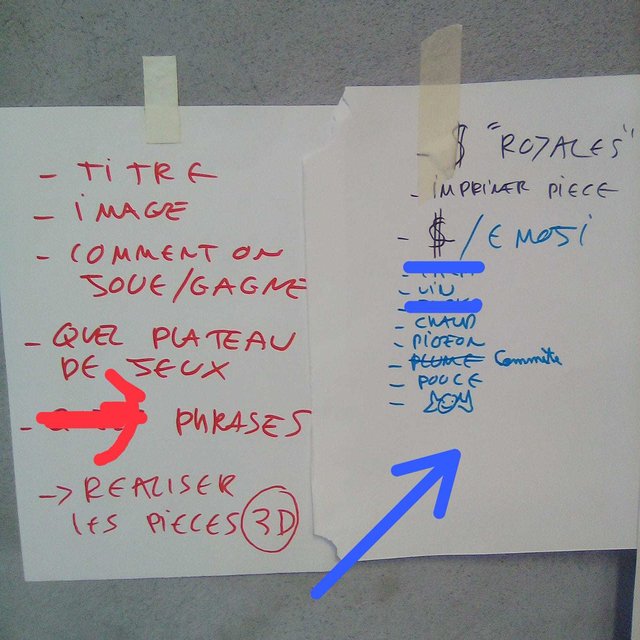 - TITRE
- IMAGE
- COMMENT ON
JOUE/GAGNE
- QUEL PLATEAU
DE JEUX
- PHRASES
-> REALISER
LES PIECES 3D
$ "ROYALES"
- IMPRIMER PIECE
- $/EMOJI
- VIN
- CHAUD
- PIGEON
- PLUME Comète
- POUCE
-